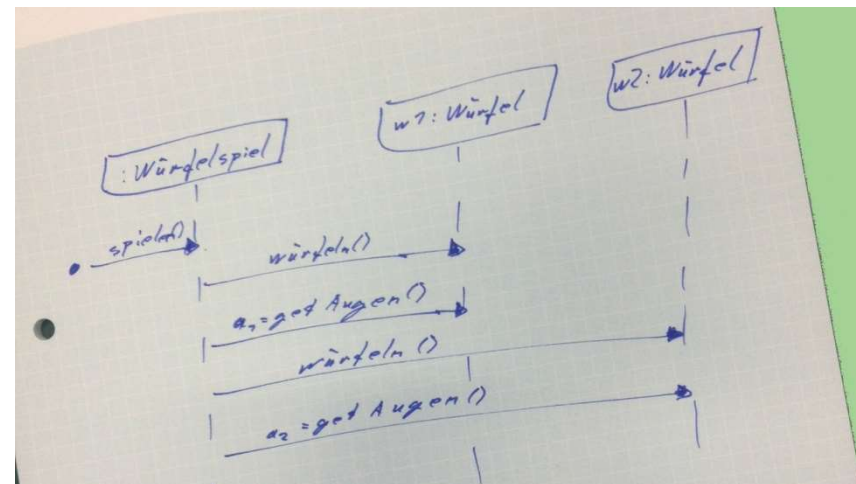 :Würfelspiel
w1: Würfel
w2: Würfel
spielen()
würfeln()
a1=get Augen()
würfeln ()
a2=get Augen()